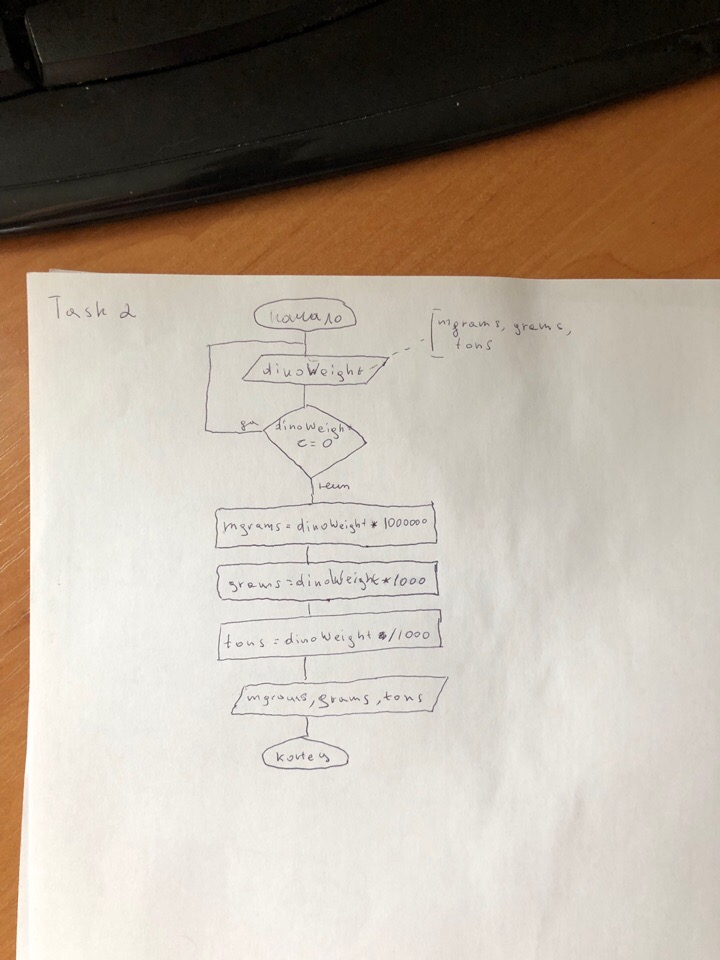 Task 2
начало
mgrams, grams,
tons
dinoWeight
да
dinoWeight
<= 0
нет
mgrams = dinoWeight * 1000000
grams = dinoWeight * 1000
tons = dinoWeight /1000
mgrams, grams, tons
конец